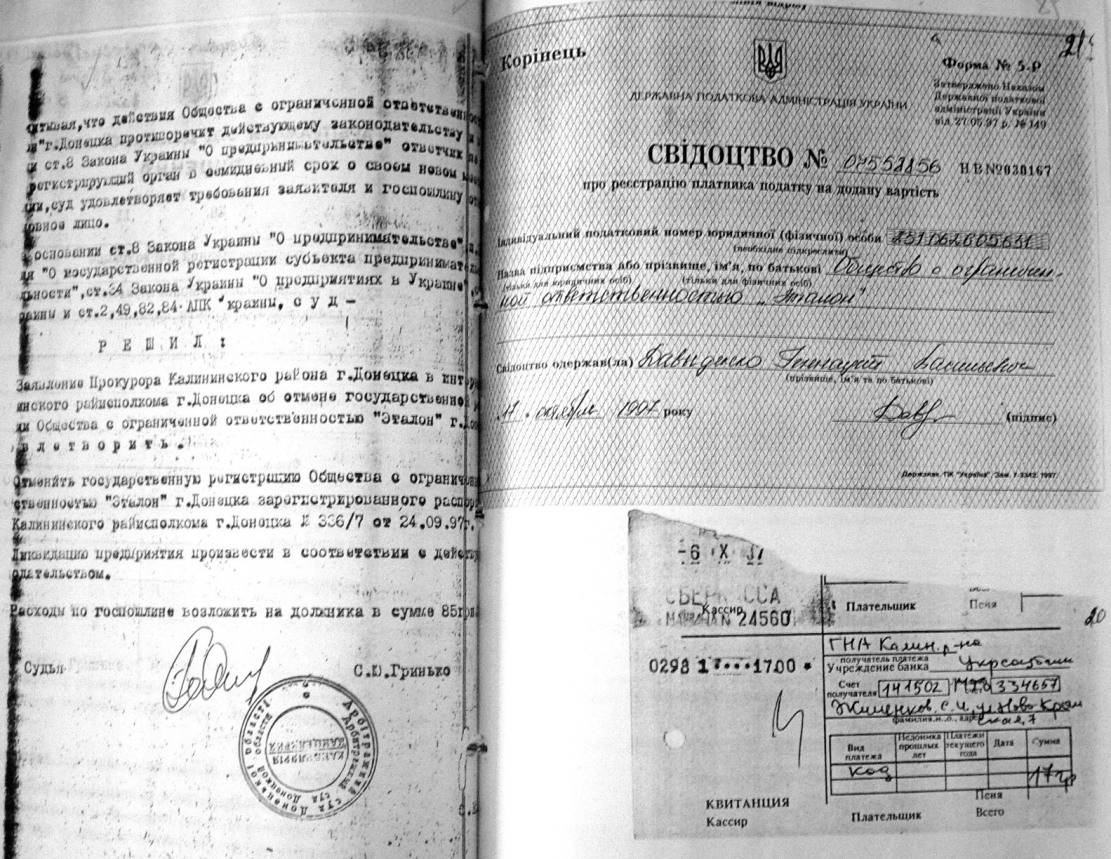 что действия Общества с ограниченной
"г.Донецка противоречит действующему законодательству
ст.8 Закона Украины "О предпринимательстве" ответчик
регистрирующий орган в семидневный срок о своем новом
суд удовлетворяет требования заявителя и госпошлину
лицо.
основании ст.8 Закона Украины "О предпринимательстве",
"О государственной регистрации субъекта
ст.34 Закона Украины "О предприятиях в Украине",
и ст.2,49,82,84 АПК краины, с у д –
Р Е Ш И Л :
Заявление Прокурора Калининского района г.Донецка в
райисполкома г.Донецка об отмене государственной
Общества с ограниченной ответственностью "Эталон"
в л е т в о р и т ь .
Отменить государственную регистрацию Общества с
"Эталон" г.Донецка зарегистрированного
Калининского райисполкома г.Донецка № 336/7 от 24.09.97г.
Ликвидацию предприятия произвести в соответствии с
Расходы по госпошлине возложить на должника в сумме
Судья С.Ю.Гринько
Корінець
Форма № 5-Р
Затверджено Наказом
Державної податкової
адміністрації України
від 27.05.97 р. № 149
ДЕРЖАВНА ПОДАТКОВА АДМІНІСТРАЦІЯ УКРАЇНИ
СВІДОЦТВО № 07552156 НВ №030167
про реєстрацію платника податку на додану вартість
Індивідуальний податковий номер юридичної (фізичної) особи
(необхідне підкреслити)
Назва підприємства або прізвище, ім'я, по батькові Общество с ограничен-
(тільки для юридичних осіб) (тільки для фізичних осіб)
ной ответственностью „Эталон"
Свідоцтво одержав(ла) Давиденко
(прізвище, ім'я та по батькові)
октября 1997 року (підпис)
Держзнак. ПК "Україна" Зам. 7-3342. 1997
21
-6 X
СБЕРКАССА
Кассир
24560
Плательщик
Пеня
20
0298 17•••1700 *
ГНА Калин. р-на
получатель платежа
Учреждение банка
Счет
получателя 141502 334657
Жиленков. С. И.
фамилия, и., о.,
Вид
платежа
Недоимка
прошлых
лет
Платежи
текущего
года
Дата
Сумма
код 17гр
Пеня
КВИТАНЦИЯ
Кассир
Плательщик
Всего